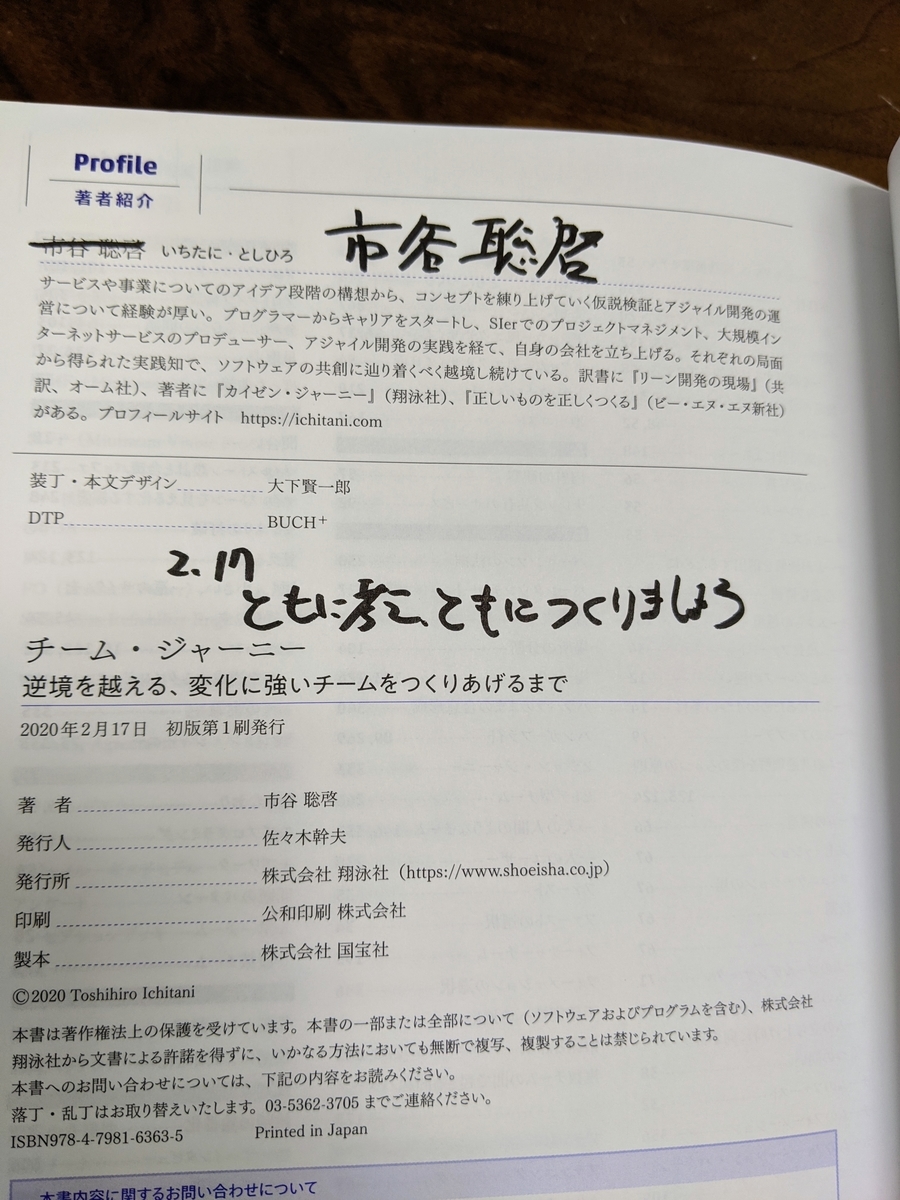 Profile
著者紹介
市谷 聡啓 いちたに・としひろ 市谷 聡啓
サービスや事業についてのアイデア段階の構想から、コンセプトを練り上げていく仮説検証とアジャイル開発の運
営について経験が厚い。プログラマーからキャリアをスタートし、SIerでのプロジェクトマネジメント、大規模イン
ターネットサービスのプロデューサー、アジャイル開発の実践を経て、自身の会社を立ち上げる。それぞれの局面
から得られた実践知で、ソフトウェアの共創に辿り着くべく越境し続けている。訳書に『リーン開発の現場』（共
訳、オーム社）、著者に『カイゼン・ジャーニー』（翔泳社）、『正しいものを正しくつくる』（ビー・エヌ・エヌ新社）
がある。プロフィールサイト https://ichitani.com
装丁・本文デザイン 大下賢一郎
DTP BUCH+
2.17
ともに考え、ともにつくりましょう
チーム・ジャーニー
逆境を越える、変化に強いチームをつくりあげるまで
2020年2月17日 初版第1刷発行
著 者 市谷 聡啓
発行人 佐々木幹夫
発行所 株式会社 翔泳社（https://www.shoeisha.co.jp）
印刷 公和印刷 株式会社
製本 株式会社 国宝社
©2020 Toshihiro Ichitani
本書は著作権法上の保護を受けています。本書の一部または全部について（ソフトウェアおよびプログラムを含む）、株式会社
翔泳社から文書による許諾を得ずに、いかなる方法においても無断で複写、複製することは禁じられています。
本書へのお問い合わせについては、下記の内容をお読みください。
落丁・乱丁はお取り替えいたします。03-5362-3705 までご連絡ください。
ISBN978-4-7981-6363-5 Printed in Japan
本書内容に関するお問い合わせについて